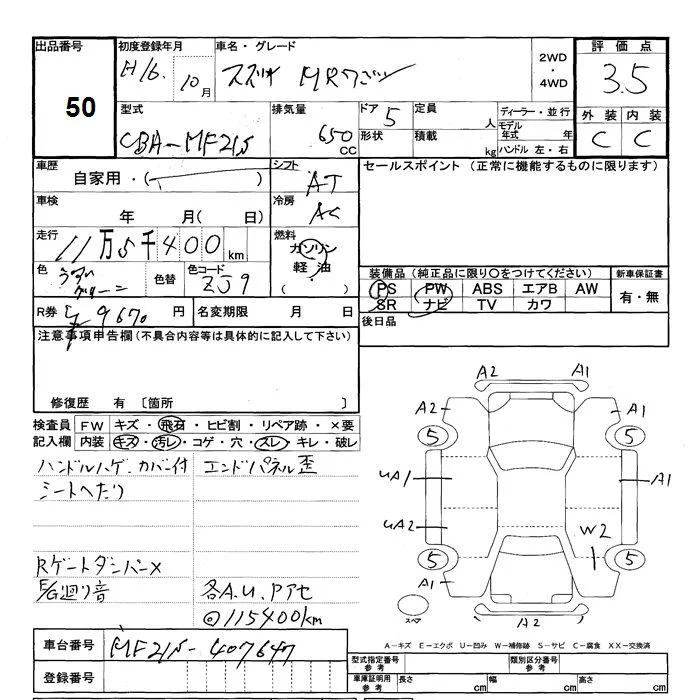 出品番号
50
初度登録年月
H16. 10月
車名・グレード
スズキ MRワゴン
2WD・4WD
評価点
3.5
型式
CBA-MF21S
排気量
650 CC
ドア 5
形状
定員 人
積載 kg
ディーラー・並行
モデル年式 年
ハンドル 左・右
外装 内装
C C
車歴
自家用・( )
シフト
AT
セールスポイント (正常に機能するものに限ります)
車検
年 月( 日)
冷房
AC
走行
11万5千400km
燃料
ガソリン
軽・油
( )
色
うすいグリーン
色替
色コード
ZJ9
装備品(純正品に限り○をつけてください)
新車保証書
PS PW ABS エアB AW
SR ナビ TV カワ
有・無
R券 9670円
名変期限 月 日
後日品
注意事項申告欄(不具合内容等は具体的に記入して下さい)
修復歴 有〔箇所 〕
検査員記入欄
FW キズ・飛石・ヒビ割・リペア跡・×要
内装 キズ・汚レ・コゲ・穴・スレ・キレ・破レ
ハンドルハゲ.カバー付
エンドパネル歪
シートへたり
Rゲートダンパー×
E/G廻り音
各A.U.Pアセ
◎115400km
A2 A1
A2 A1
5 5
UA1 A1
UA2 W2
5 5
A1
スペア
A2
車台番号
MF21S-407647
登録番号
A-キズ E-エクボ U-凹み W-補修跡 S-サビ C-腐食 XX-交換済
型式指定番号 参考
類別区分番号 参考
車庫証明用 参考
長さ cm
幅 cm
高さ cm